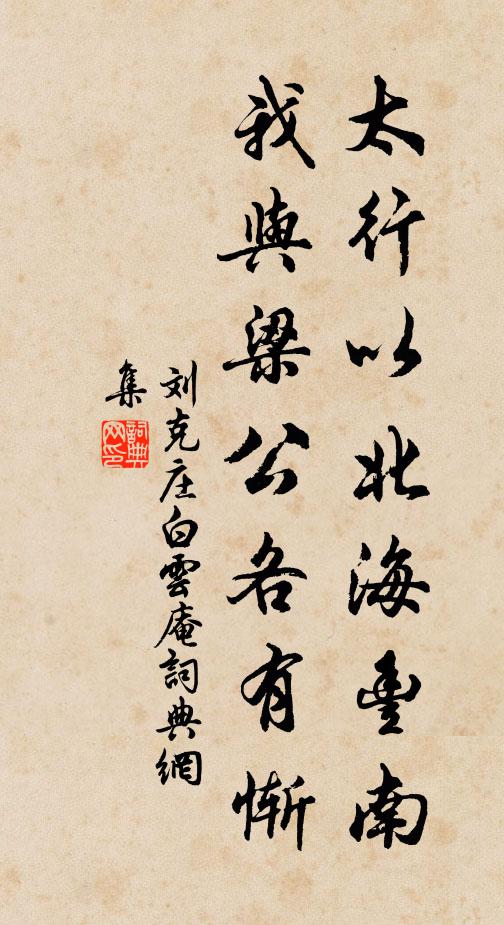 太行以北海豐南
我與梁公各有慚
刘克庄白雲庵詞典網
集
詞典网印